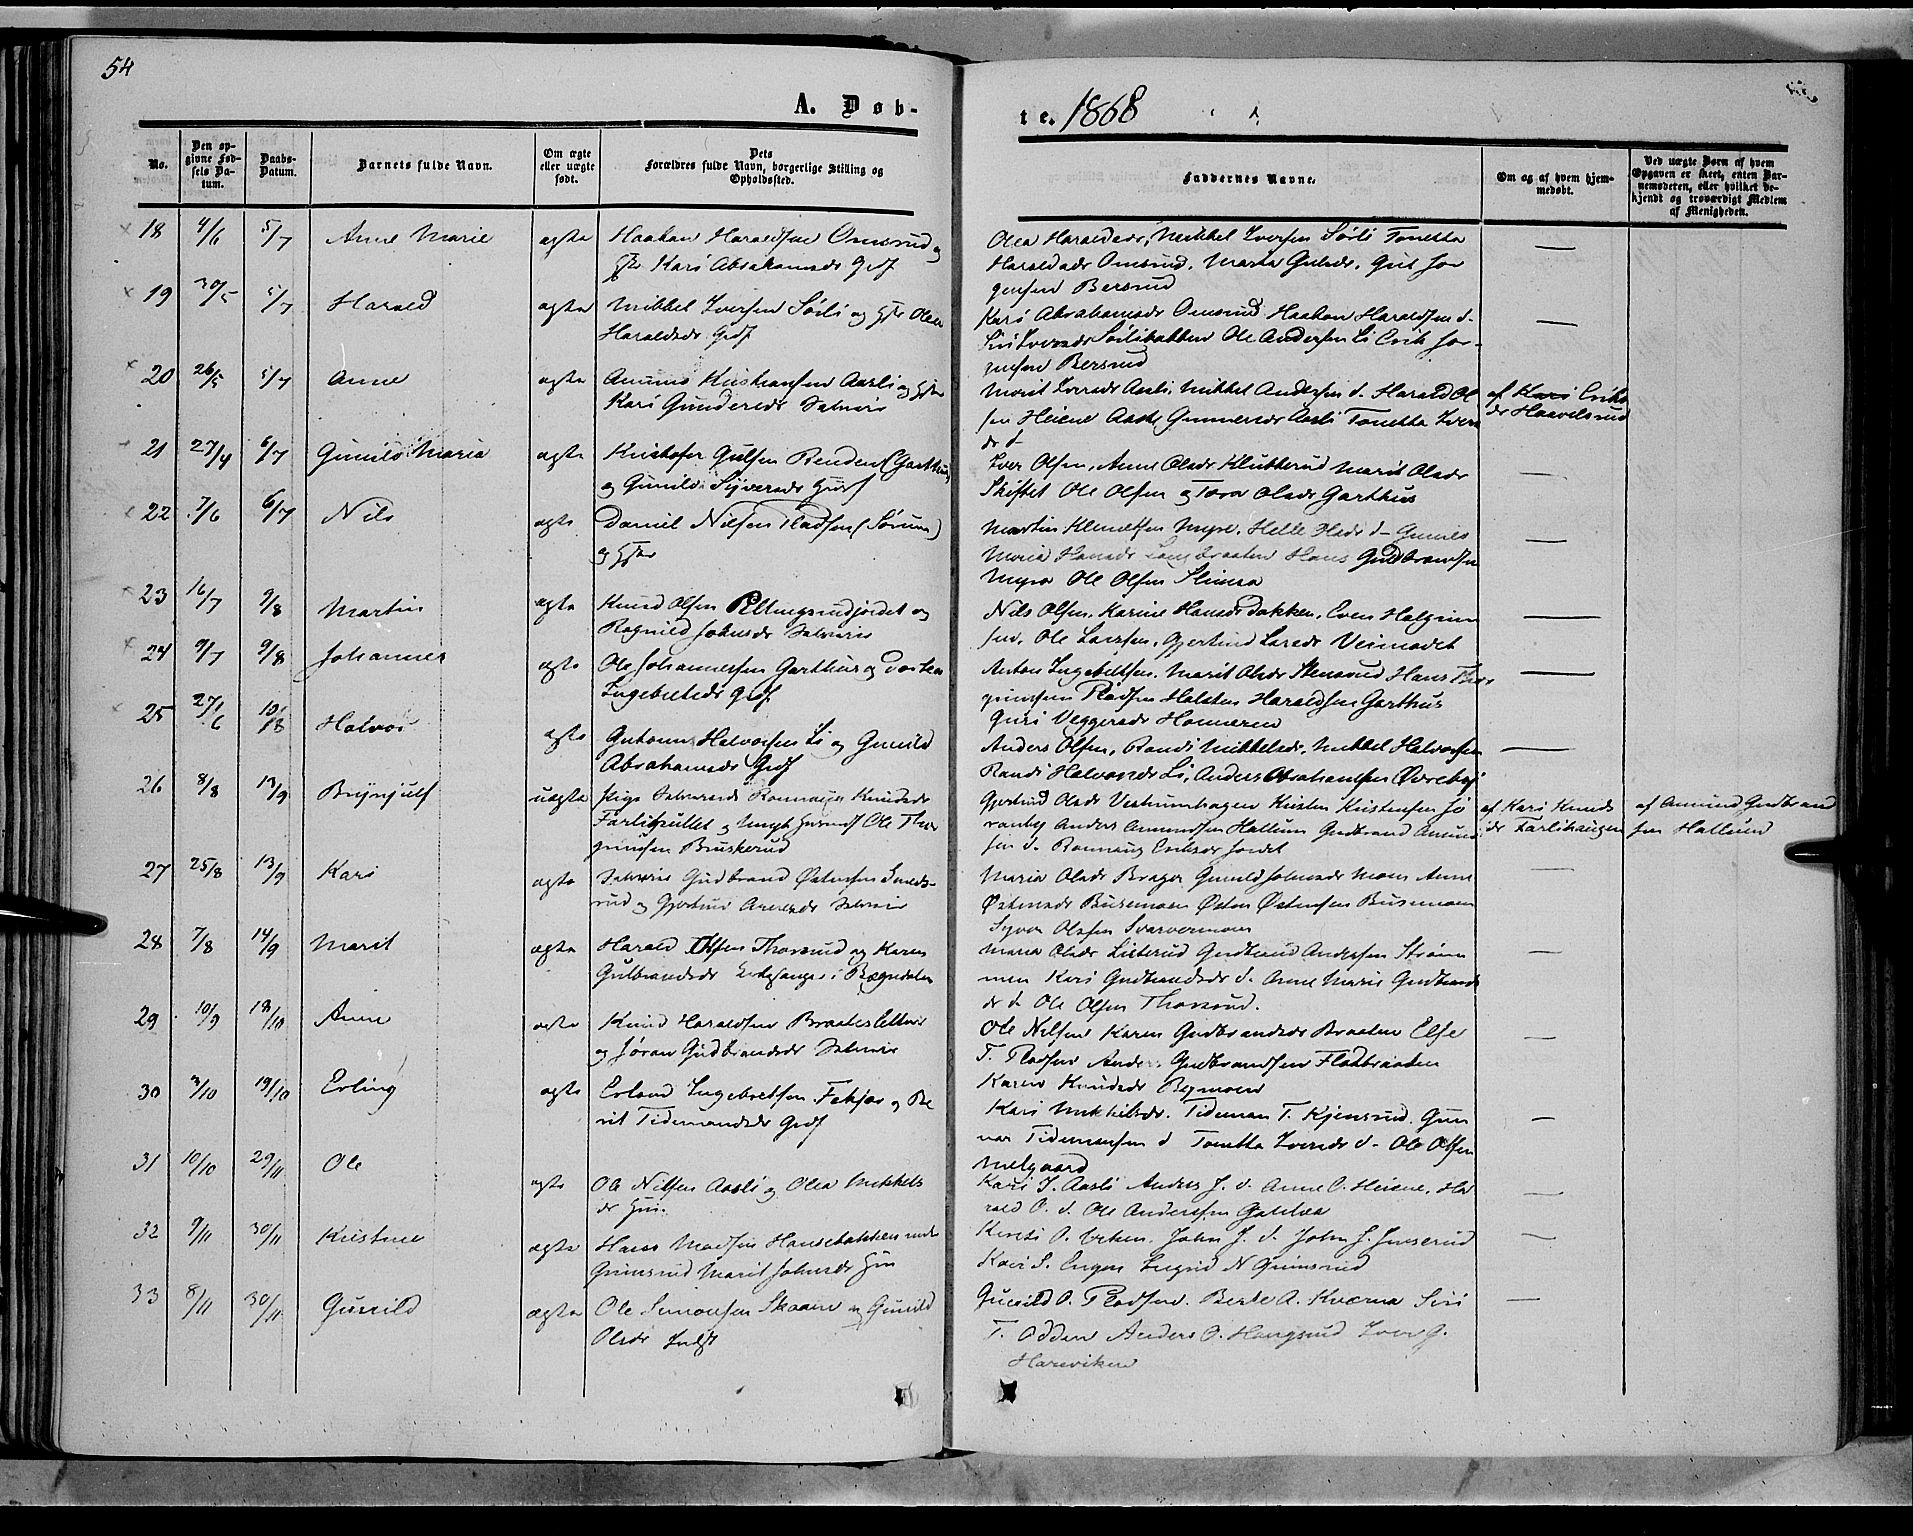 54
A. Døb-
te. 1868
No.
Den op-
givne Fød-
sels Da-
tum.
Daabs-
Datum.
Barnets fulde Navn.
Om ægte
eller uægte
født.
Dets
Forældres fulde Navn, borgerlige Stilling og
Opholdssted.
Faddernes Navne.
Om og af hvem hjem-
medøbt.
Ved uægte Børn af hvem
Opgaven er skeet, enten Bar-
nemoderen, eller hvilket be-
kjendt og troværdigt Medlem
af Menigheden.
18 4/6 5/7 Anne Marie ægte Haakon Haraldsen Omsrud og
Kari Abrahamsdr Grdf
Olea Haraldsdr, Mikkel Iversen Sørli Tonetta
Haraldsdr Omsrud. Marta Gulsdr. Gul Jør
gensen Bersrud
19 30/5 5/7 Harald ægte Mikkel Iversen Sørli og Hstr Olea
Haraldsdr Grdf
Kari Abrahamsdr Omsrud Haakon Haraldsen d.
Siri Iversdr Sørlibakken Ole Andersen Li Erik Jør-
gensen Bersrud
20 26/5 5/7 Anne ægte Amund Kristiansen Aasli og Hstr
Kari Gundersdr Selveie
Marit Iversdr Aasli, Mikkel Andersen d. Harald Ol
sen Heiene Gunnersdr Aasli Tonetta Ivers
dr d
af Kari Eriks
dr Haavelsrud
21 27/4 6/7 Gunild Maria ægte Kristofer Gulsen Renden (Garthus)
og Gunild Syversdr Husf
Iver Olsen, Anne Olsdr Klubberud Marit Olsdr
Skiftet Ole Olsen og Tora Olsdr Garthus
22 7/6 6/7 Nils ægte Daniel Nilsen Pladsen (Sørum)
og Hstr
Martin Klemetsen Myre. Helle d-
Maria Hansdr Hans Gudbrandsen
Myra Ole Olsen
23 16/7 9/8 Martin ægte Knud Olsen Pellingsrudjordet og
Ragnild Johnsdr Selveie
Nils Olsen. Karine Hansdr Dokken, Even Helgrim
sen, Ole Larssen, Gjertrud Larsdr Veimodet
24 9/7 9/8 Johannes ægte Ole Johannessen Garthus og
Ingebretsdr Grdf
Anton Ingebretsen. Marit Olsdr Hans Thor
grimsen Pladsen Halsten Haraldsen Garthus
Guri Veggersdr Honneren
25 27/6 10/8 Halvor ægte Guttorm Halvorsen Li og Gunild
Abrahamsdr Grdf
Anders Olsen, Randi Mikkelsdr. Mikkel Halvorsen
Randi Halvorsdr Li, Anders Abrahamsen Øvrebø
26 8/8 13/9 Brynjulf uægte Pige Ronnaug Knudsdr
og Ungk Ole Thor
grimsen Bruskerud
Gjertrud Olsdr Vestrumhagen Kristen Kristensen Jø
Anders Amundsen Hallum Gudbrand Amund
sen d. Ronnaug Eriksdr Jordet
af Kari Knuds
dr Farlihaugen
af Amund Gudbrand
sen Hallum
27 25/8 13/9 Kari ægte Gudbrand Østensen Smeds-
rud og Gjertrud Arnesdr Selveie
Maria Olsdr Brager Gunild Johnsdr Moen Anne
Østensdr Busmoen Østen Østensen Busmoen
Syver Olsen Svarvermoen
28 7/8 14/9 Marit ægte Harald Olsen Thorsrud og Karen
Gulbrandsdr i Bægndalen
Maria Olsdr Listerud Gudbrand Andersen Strøm
men Kari Gudbrandsdr d. Anne Marie Gudbrands
dr d Ole Olsen Thorsrud.
29 10/9 18/10 Anne ægte Knud Haraldsen
og Jøran Gudbrandsdr Selveie
Ole Nilsen Karen Gudbrandsdr Braaten Else
T. Pladsen Anders Gudbrandsen Fladbraaten
Karen Knudsdr Bymoen
30 3/10 19/10 Erling ægte Erland Ingebretsen Fekjær og Be
rit Tidemandsdr Grdf
Kari Mikkelsdr. Tideman T. Kjensrud. Gun
nar Tidemansen d Tonetta Iversdr d- Ole Olsen
Melgaard
31 10/10 29/11 Ole ægte Ole Nilsen Aasli og Olea Mikkels
dr
Kari I. Aasli Anders J. d. Anne O. Heiene. Ha
rald O. d. Ole Andersen
32 9/11 30/11 Kristine ægte Hans Madsen Hansebakken under
Grimsrud Marit Johnsdr
O. John J. d. John J. Jutserud
Kari S. Engen Ingrid N Grimsrud
33 8/11 30/11 Gunild ægte Ole Simonsen og Gunild
Olsdr
Gunild O. Pladsen. Berte A. Kværna Siri
T. Odden Anders O. Haugsrud Iver G.
Hareviken